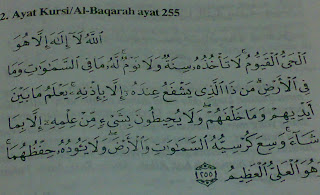 2. Ayat Kursi/Al-Baqarah ayat 255
اللَّهُ لَا إِلَٰهَ إِلَّا هُوَ
الْحَيُّ الْقَيُّومُ ۚ لَا تَأْخُذُهُ سِنَةٌ وَلَا نَوْمٌ ۚ لَهُ مَا فِي السَّمَاوَاتِ وَمَا
فِي الْأَرْضِ ۗ مَنْ ذَا الَّذِي يَشْفَعُ عِنْدَهُ إِلَّا بِإِذْنِهِ ۚ يَعْلَمُ مَا بَيْنَ
أَيْدِيهِمْ وَمَا خَلْفَهُمْ ۖ وَلَا يُحِيطُونَ بِشَيْءٍ مِنْ عِلْمِهِ إِلَّا بِمَا
شَاءَ ۚ وَسِعَ كُرْسِيُّهُ السَّمَاوَاتِ وَالْأَرْضَ ۖ وَلَا يَئُودُهُ حِفْظُهُمَا ۚ
وَهُوَ الْعَلِيُّ الْعَظِيمُ ﴿٢٥٥﴾